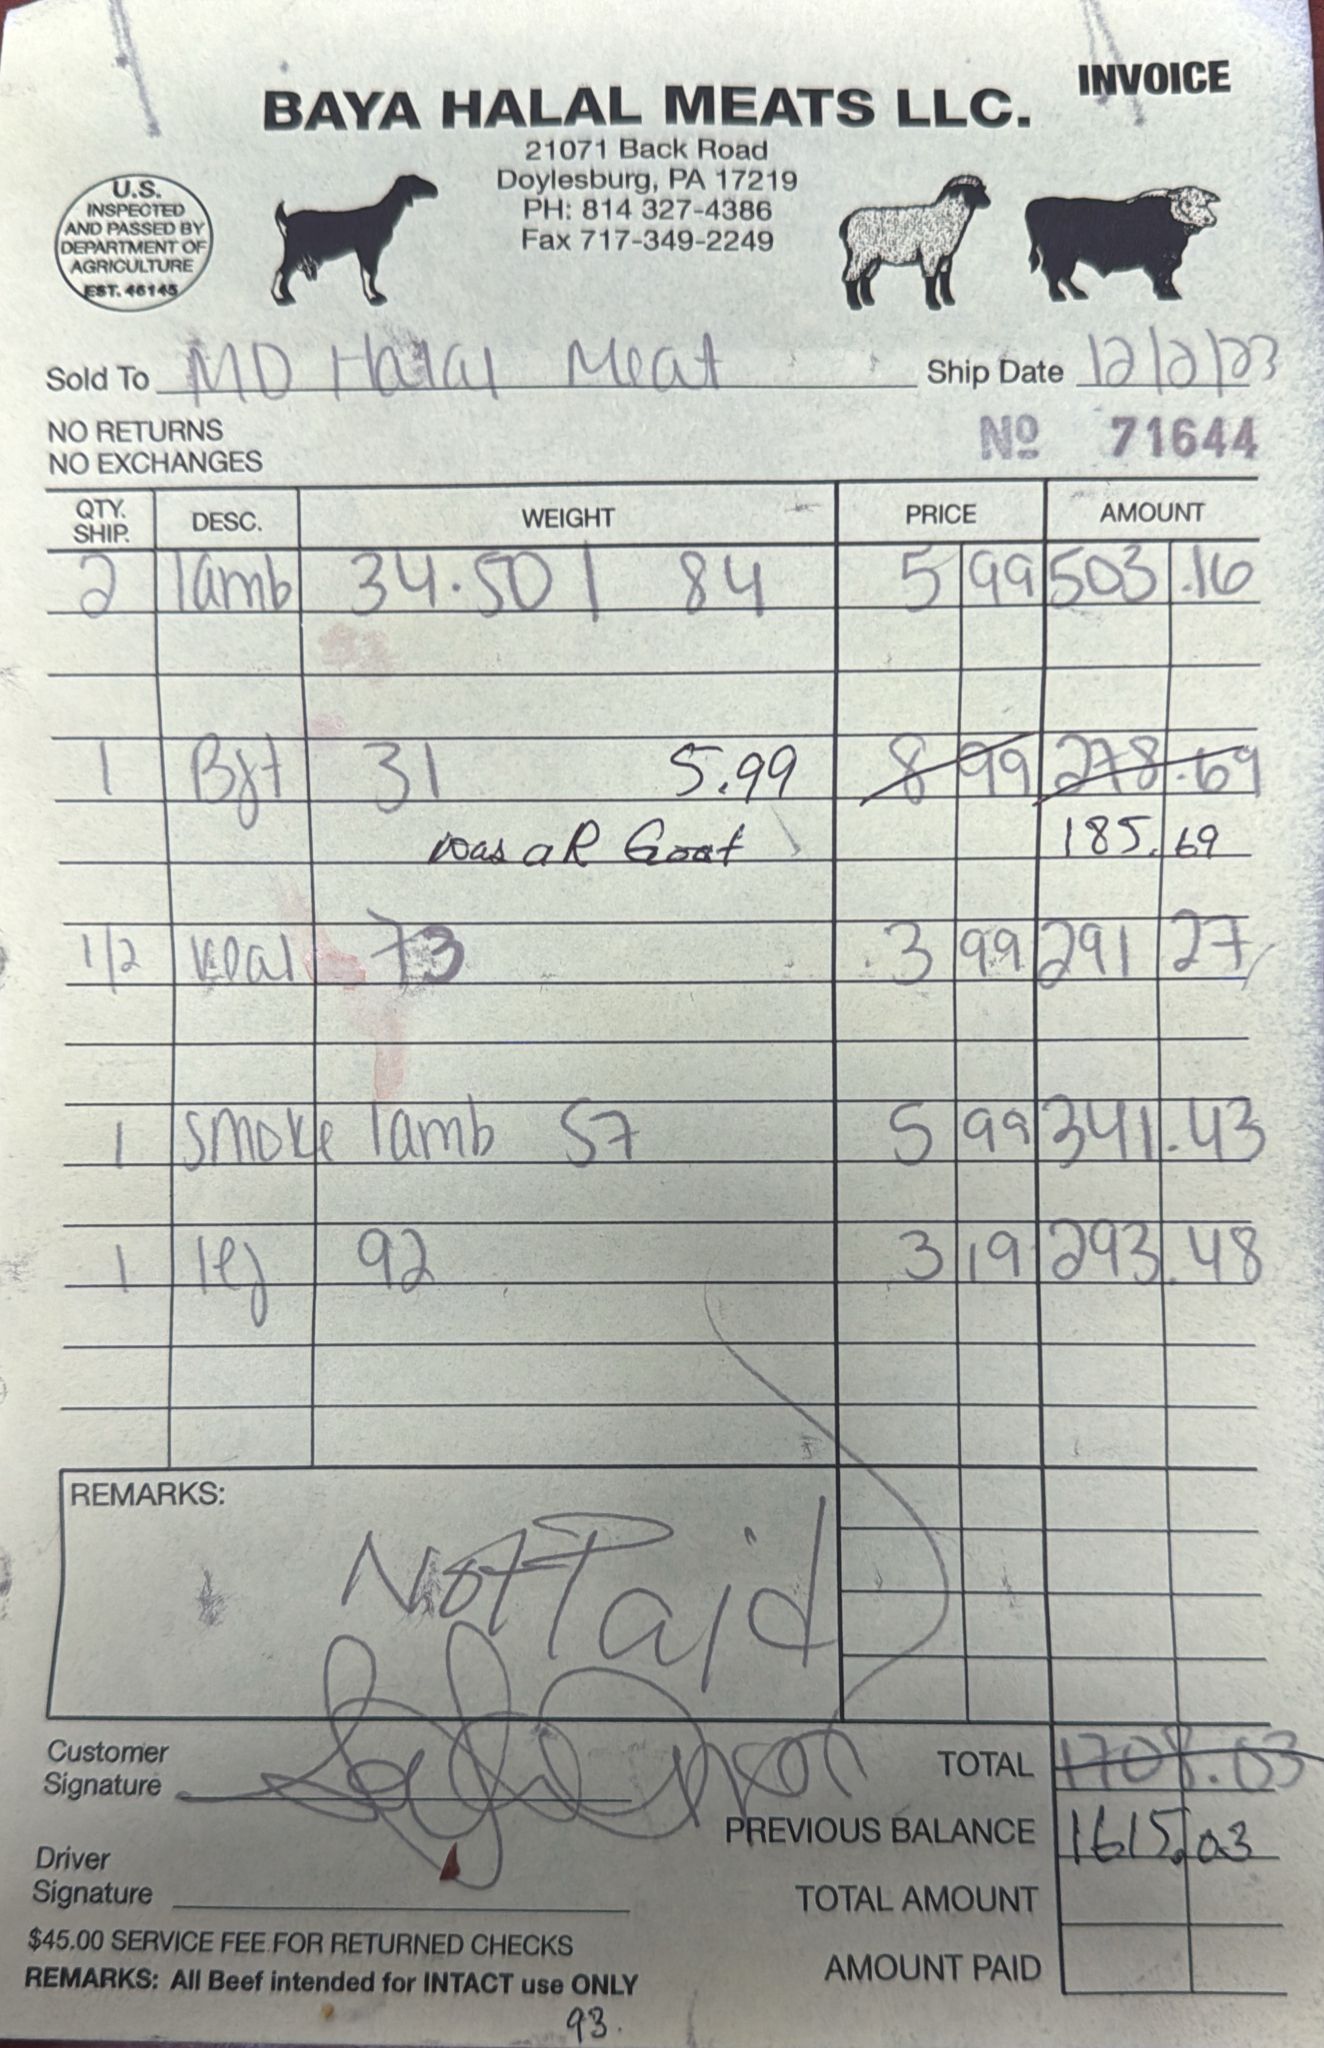 INVOICE
BAYA HALAL MEATS LLC.
21071 Back Road
Doylesburg, PA 17219
PH: 814 327-4386
Fax 717-349-2249
U.S.
INSPECTED
AND PASSED BY
DEPARTMENT OF
AGRICULTURE
EST. 46145
Sold To MD Halal Meat Ship Date 12/2/23
NO RETURNS
NO EXCHANGES
No 71644
QTY. SHIP. DESC. WEIGHT PRICE AMOUNT
2 lamb 34.50 | 84 5 99 503.16
1 Bgt 31 5.99 8 99 278.69
was a R Goat 185.69
1/2 veal 73 3 99 291 27
1 smoke lamb 57 5 99 341.43
1 leg 92 3 19 293.48
REMARKS:
Not Paid
Customer
Signature
TOTAL 1708.03
PREVIOUS BALANCE 1615.03
Driver
Signature
TOTAL AMOUNT
$45.00 SERVICE FEE FOR RETURNED CHECKS
AMOUNT PAID
REMARKS: All Beef intended for INTACT use ONLY
93.